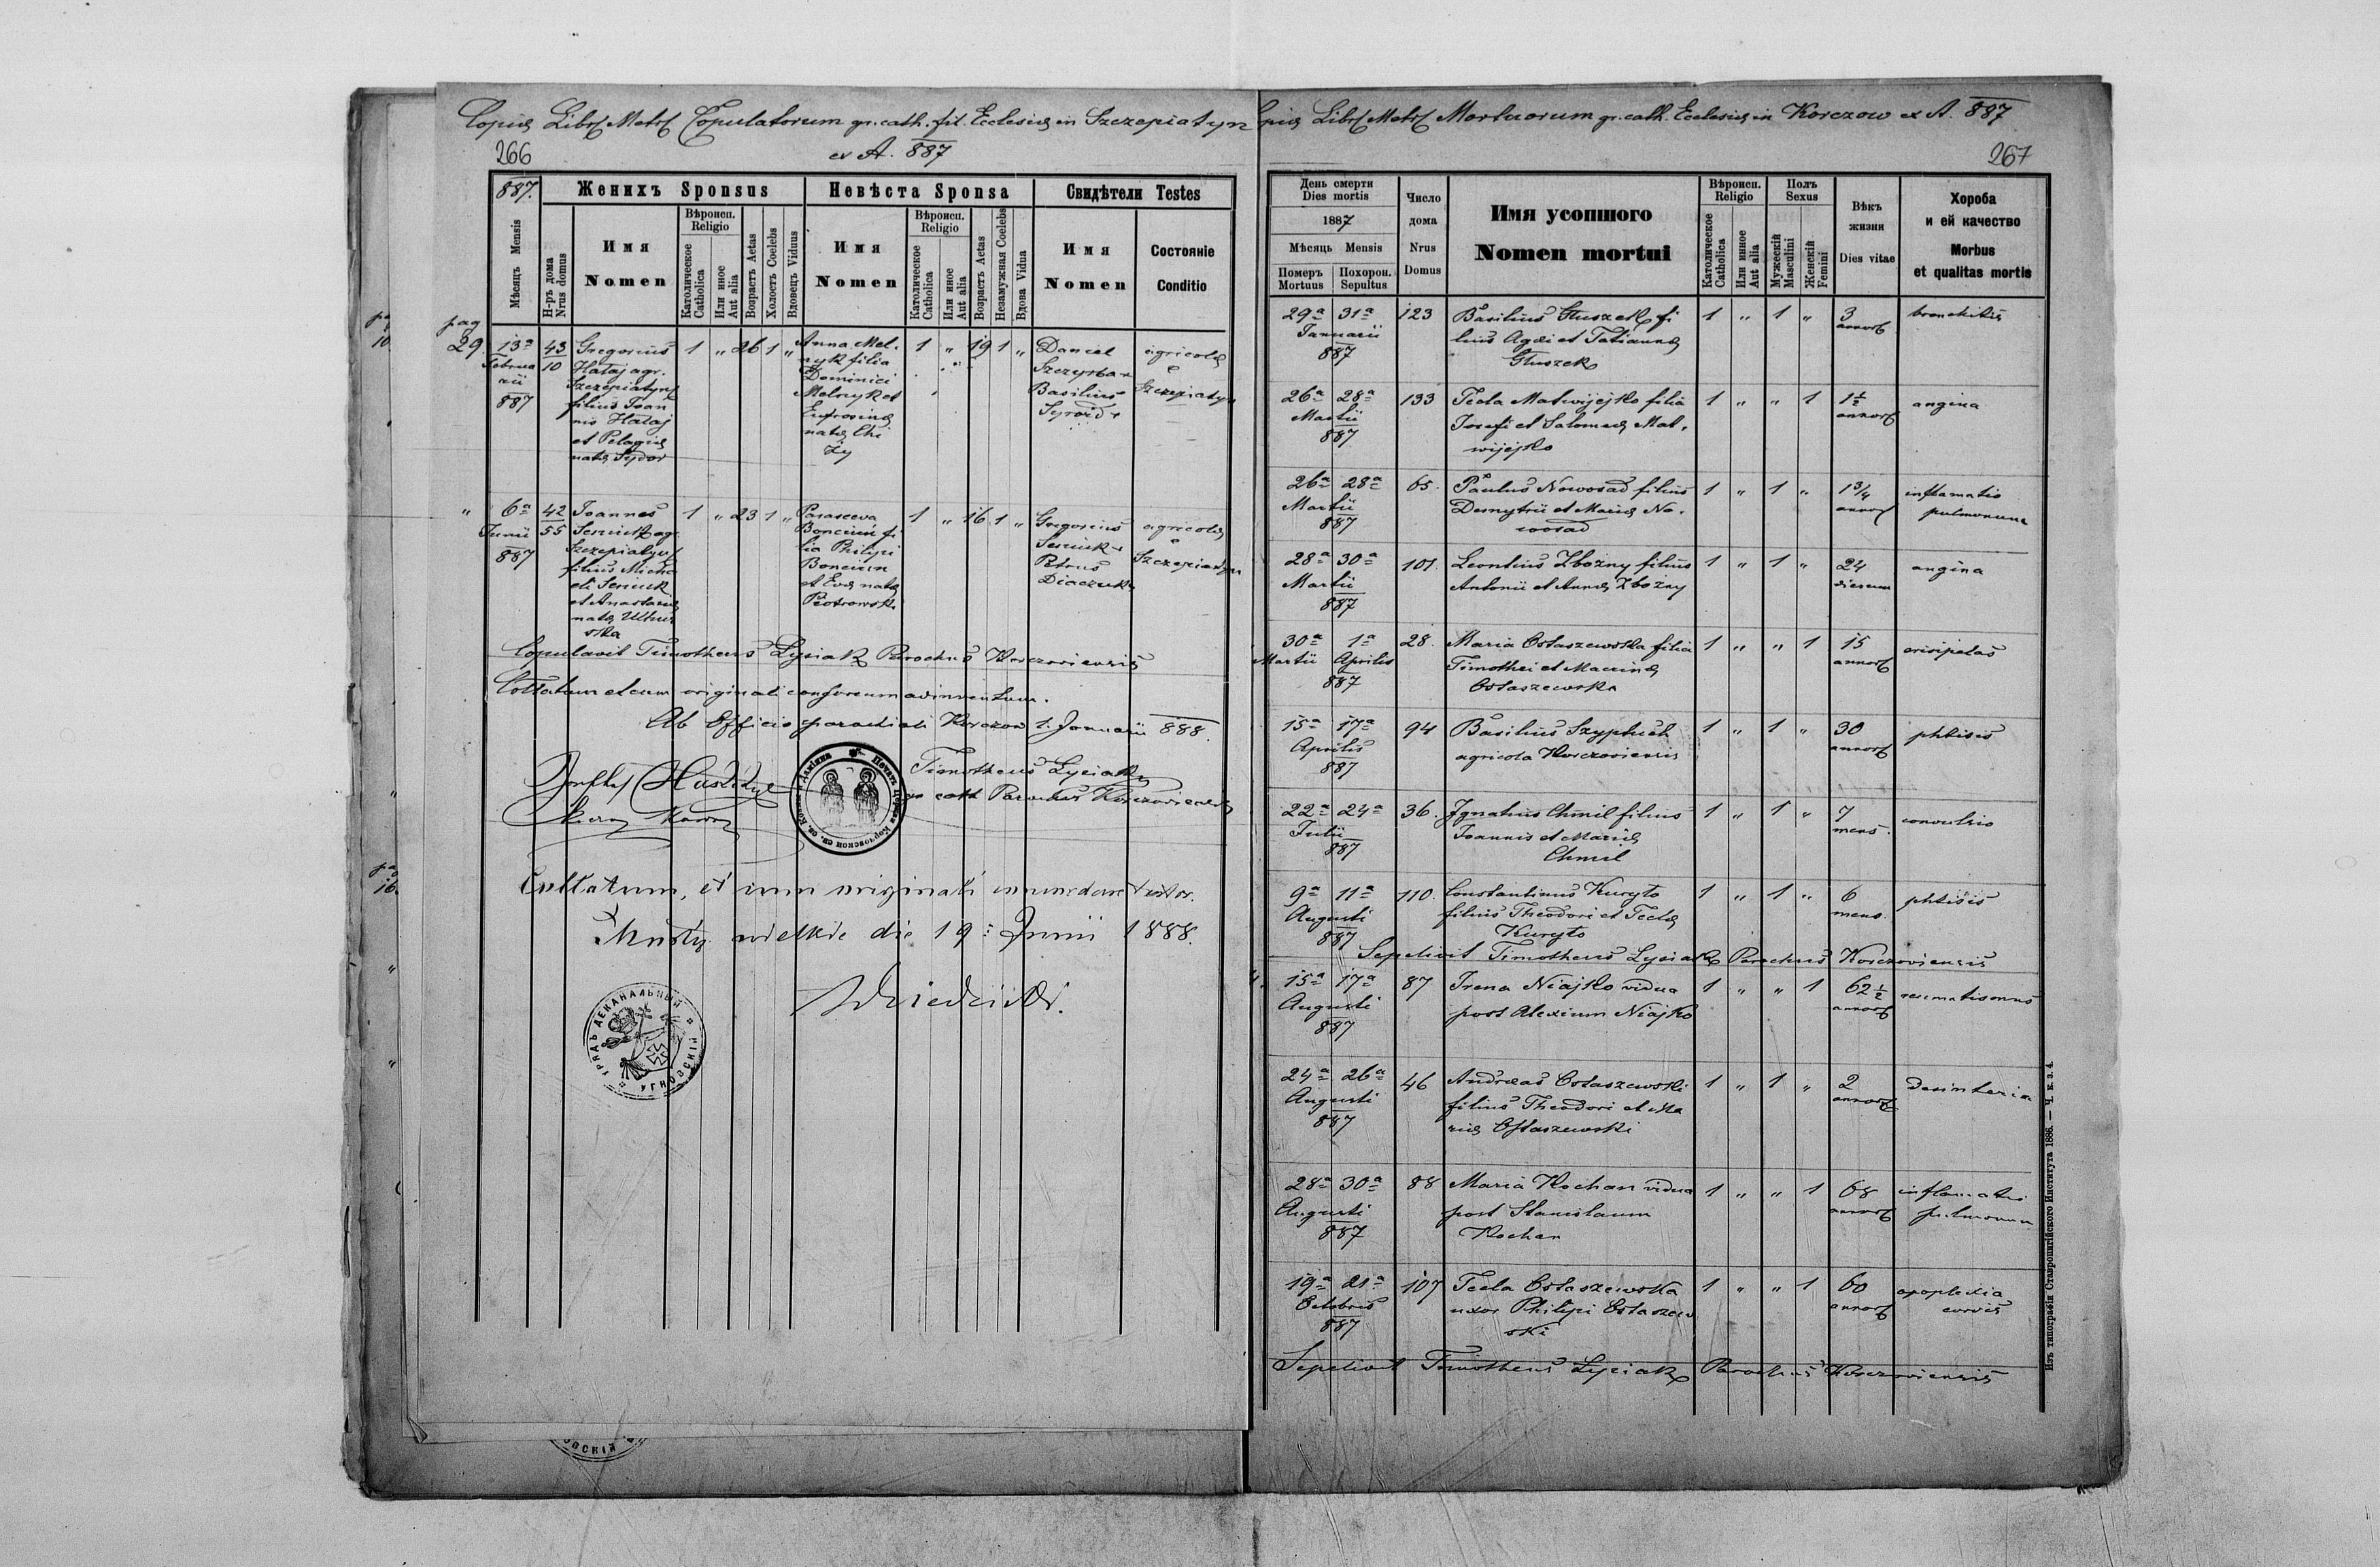 Copia Libri Metr Copulatorum gr. cath. fil. Ecclesiæ in Szczepiatyn
ex A. 887
266
887.
Женихъ Sponsus
Невѣста Sponsa
Свидѣтели Testes
Мѣсяцъ Mensis
Н-ръ дома Nrus domus
Имя
Nomen
Вѣроисп. Religio
Католическое Catholica
Или иное Aut alia
Возрастъ Aetas
Холостъ Coelebs
Вдовецъ Viduus
Имя
Nomen
Вѣроисп. Religio
Католическое Catholica
Или иное Aut alia
Возрастъ Aetas
Незамужная Coelebs
Вдова Vidua
Имя
Nomen
Состояніе
Conditio
pag
29.
13a
Februa
rii
887
43
10
Gregorius
Hataj agr.
filius Joan
nis Hataj
et Pelagiæ
natæ Sydor
1 „ 26 1 „
Anna Mel-
nyk filia
Dominici
Melnyk et
Eufrosinæ
natæ
1 „ 19 1 „
Daniel
Basilius
agricolæ
Szczepiatyn
„
6a
Junii
887
42
55
Joannes
Seniuk agr.
filius Micha
eli Seniuk
et Anastasiæ
natæ
1 „ 23 1 „
Parasceva
Bonciun fi
lia Philipi
Bonciun
et Evæ natæ
Piotrowska
1 „ 16 1 „
Gregorius
Seniuk
Petrus
Diaczuk
agricolæ
Szczepiatyn
Copulavit Timotheus Lysiak Parochus Korczoviensis
Collatum et cum originali conforem adinventum.
Ab Officio parochiali Korczow 1. Januarii 888.
Timotheus Lysiak
gr. cath. Parochus Korczoviensis
Collatum, et cum originali
wielkie die 19: Junii 1888.
УРЯДЪ ДЕКАНАЛЬНЫЙ УГНОВСКІЙ
Copia Libri Metr Mortuorum gr. cath. Ecclesiæ in Korczow ex A. 887
267
День смерти
Dies mortis
1887
Мѣсяцъ Mensis
Померъ Mortuus
Похорон. Sepultus
Число
дома
Nrus
Domus
Имя усопшого
Nomen mortui
Вѣроисп. Religio
Католическое Catholica
Или инное Aut alia
Полъ Sexus
Мужескій Masculini
Женскій Femini
Вѣкъ
жизни
Dies vitae
Хороба
и ей качество
Morbus
et qualitas mortis
29a 31a 123 Basilius Głuszek fi 1 „ 1 „ 3 bronchitis
Januarii
887
lius Agæi et Tatiannæ
Głuszek
26a 28a 133 Tecla Matwijejko filia 1 „ „ 1 1½ angina
Martii
887
Josefi et Salomeæ Mat-
wijejko
26a 28a 65. Paulus Nowosad filius 1 „ 1 „ 1¾ inflamatio
Martii
887
Demytrii et Mariæ No-
wosad
pulmonum
28a 30a 101. Leontius Zbożny filius 1 „ 1 „ 24 angina
Martii
887
Antonii et Annæ Zbożny
dierum
30a 1a 28. Maria Ostaszewska filia 1 „ „ 1 15 erisipelas
Martii Aprilis
887
Timothei et Macrinæ
Ostaszewska
15a 17a 94 Basilius 1 „ 1 „ 30 phtisis
Aprilis
887
agricola Korczoviensis
22a 24a 36. Ignatius Chmil filius 1 „ 1 „ 7 convulsio
Julii
887
Joannis et Mariæ
Chmil
mens.
9a 11a 110. Constantinus Kuryło 1 „ 1 „ 6 phtisis
Augusti
887
filius Theodori et Teclæ
Kuryło
mens.
Sepelivit Timotheus Lysiak Parochus Korczoviensis
15a 17a 87 Irena Niajko vidua 1 „ „ 1 62½ reumatismus
Augusti
887
post Alexium Niajko
24a 26a 46 Andreas Ostaszewski 1 „ 1 „ 2 desinteria
Augusti
887
filius Theodori et Ma
riæ Ostaszewski
28a 30a 88 Maria Kochan vidua 1 „ „ 1 68 inflamatio
Augusti
887
post Stanislaum
Kochan
pulmonum
19a 21a 107 Tecla Ostaszewska 1 „ „ 1 60 apoplexia
Octobris
887
uxor Philipi Ostaszew
ski
Sepelivit Timotheus Lysiak Parochus Korczoviensis
Изъ типографіи Ставропигійского Института 1886. — Ч. к. з. 4.